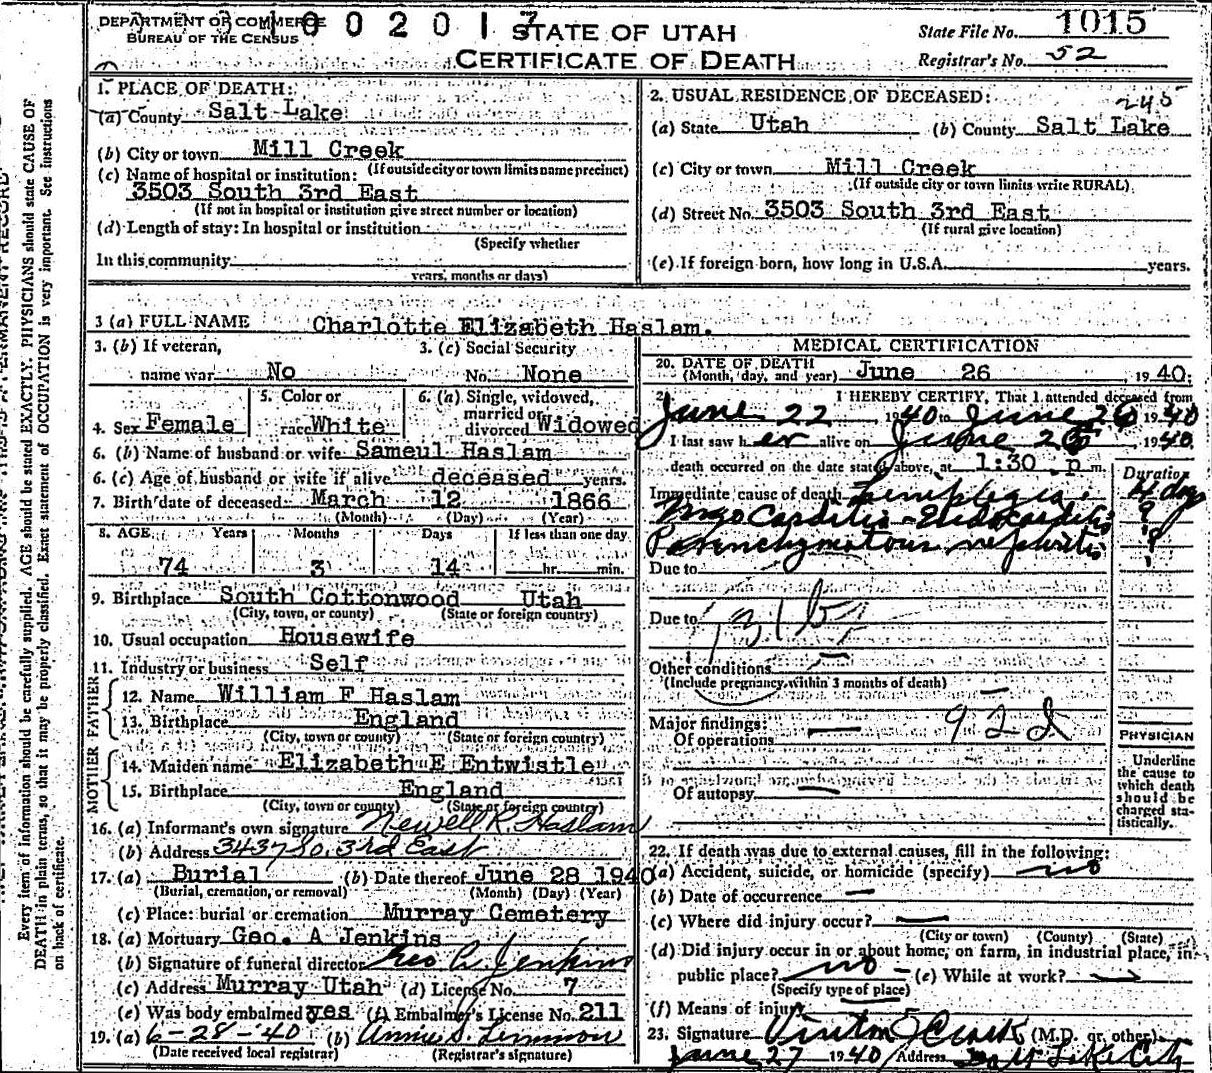 DEPARTMENT OF COMMERCE
BUREAU OF THE CENSUS
0 0 2 0 1 7
STATE OF UTAH
CERTIFICATE OF DEATH
State File No. 1015
Registrar's No. 52
1. PLACE OF DEATH:
(a) County Salt Lake
(b) City or town Mill Creek
(If outside city or town limits name precinct)
(c) Name of hospital or institution:
3503 South 3rd East
(If not in hospital or institution give street number or location)
(d) Length of stay: In hospital or institution
(Specify whether
In this community
years, months or days)
2. USUAL RESIDENCE OF DECEASED: 245
(a) State Utah (b) County Salt Lake
(c) City or town Mill Creek
(If outside city or town limits write RURAL)
(d) Street No. 3503 South 3rd East
(If rural give location)
(e) If foreign born, how long in U.S.A. years.
3 (a) FULL NAME Charlotte Elizabeth Haslam.
3. (b) If veteran, name war No
3. (c) Social Security No. None
4. Sex Female
5. Color or race White
6. (a) Single, widowed, married or divorced Widowed
6. (b) Name of husband or wife Sameul Haslam
6. (c) Age of husband or wife if alive deceased years.
7. Birth date of deceased March 12 1866
(Month) (Day) (Year)
8. AGE Years Months Days If less than one day
74 3 14 hr. min.
9. Birthplace South Cottonwood Utah
(City, town, or county) (State or foreign country)
10. Usual occupation Housewife
11. Industry or business Self
FATHER
12. Name William F Haslam
13. Birthplace England
(City, town or county) (State or foreign country)
MOTHER
14. Maiden name Elizabeth E Entwistle
15. Birthplace England
(City, town or county) (State or foreign country)
16. (a) Informant's own signature Newell R. Haslam
(b) Address 3437 So. 3rd East
17. (a) Burial (b) Date thereof June 28 1940
(Burial, cremation, or removal) (Month) (Day) (Year)
(c) Place: burial or cremation Murray Cemetery
18. (a) Mortuary Geo. A Jenkins
(b) Signature of funeral director Geo A. Jenkins
(c) Address Murray Utah (d) License No. 7
(e) Was body embalmed yes (f) Embalmer's License No. 211
19. (a) 6-28-'40 (b) Annie S. Lemmon
(Date received local registrar) (Registrar's signature)
MEDICAL CERTIFICATION
20. DATE OF DEATH
(Month, day, and year) June 26, 1940.
I HEREBY CERTIFY, That I attended deceased from
June 22 1940 to June 26 1940
I last saw her alive on June 26, 1940.
death occurred on the date stated above, at 1:30 p m.
Duration
Immediate cause of death Hemiplegia. 4 days
Myocarditis - Endocarditis ?
Parenchymatous nephritis ?
Due to
Due to 131b
Other conditions
(Include pregnancy within 3 months of death)
Major findings:
Of operations 92d
Of autopsy
PHYSICIAN
Underline
the cause to
which death
should be
charged sta-
tistically.
22. If death was due to external causes, fill in the following:
(a) Accident, suicide, or homicide (specify) no
(b) Date of occurrence
(c) Where did injury occur?
(City or town) (County) (State)
(d) Did injury occur in or about home, on farm, in industrial place, in
public place? no (e) While at work?
(Specify type of place)
(f) Means of injury
23. Signature (M.D. or other)
June 27 1940 Address Salt Lake City
Every item of information should be carefully supplied. AGE should be stated EXACTLY. PHYSICIANS should state CAUSE OF
DEATH in plain terms, so that it may be properly classified. Exact statement of OCCUPATION is very important. See instructions
on back of certificate.